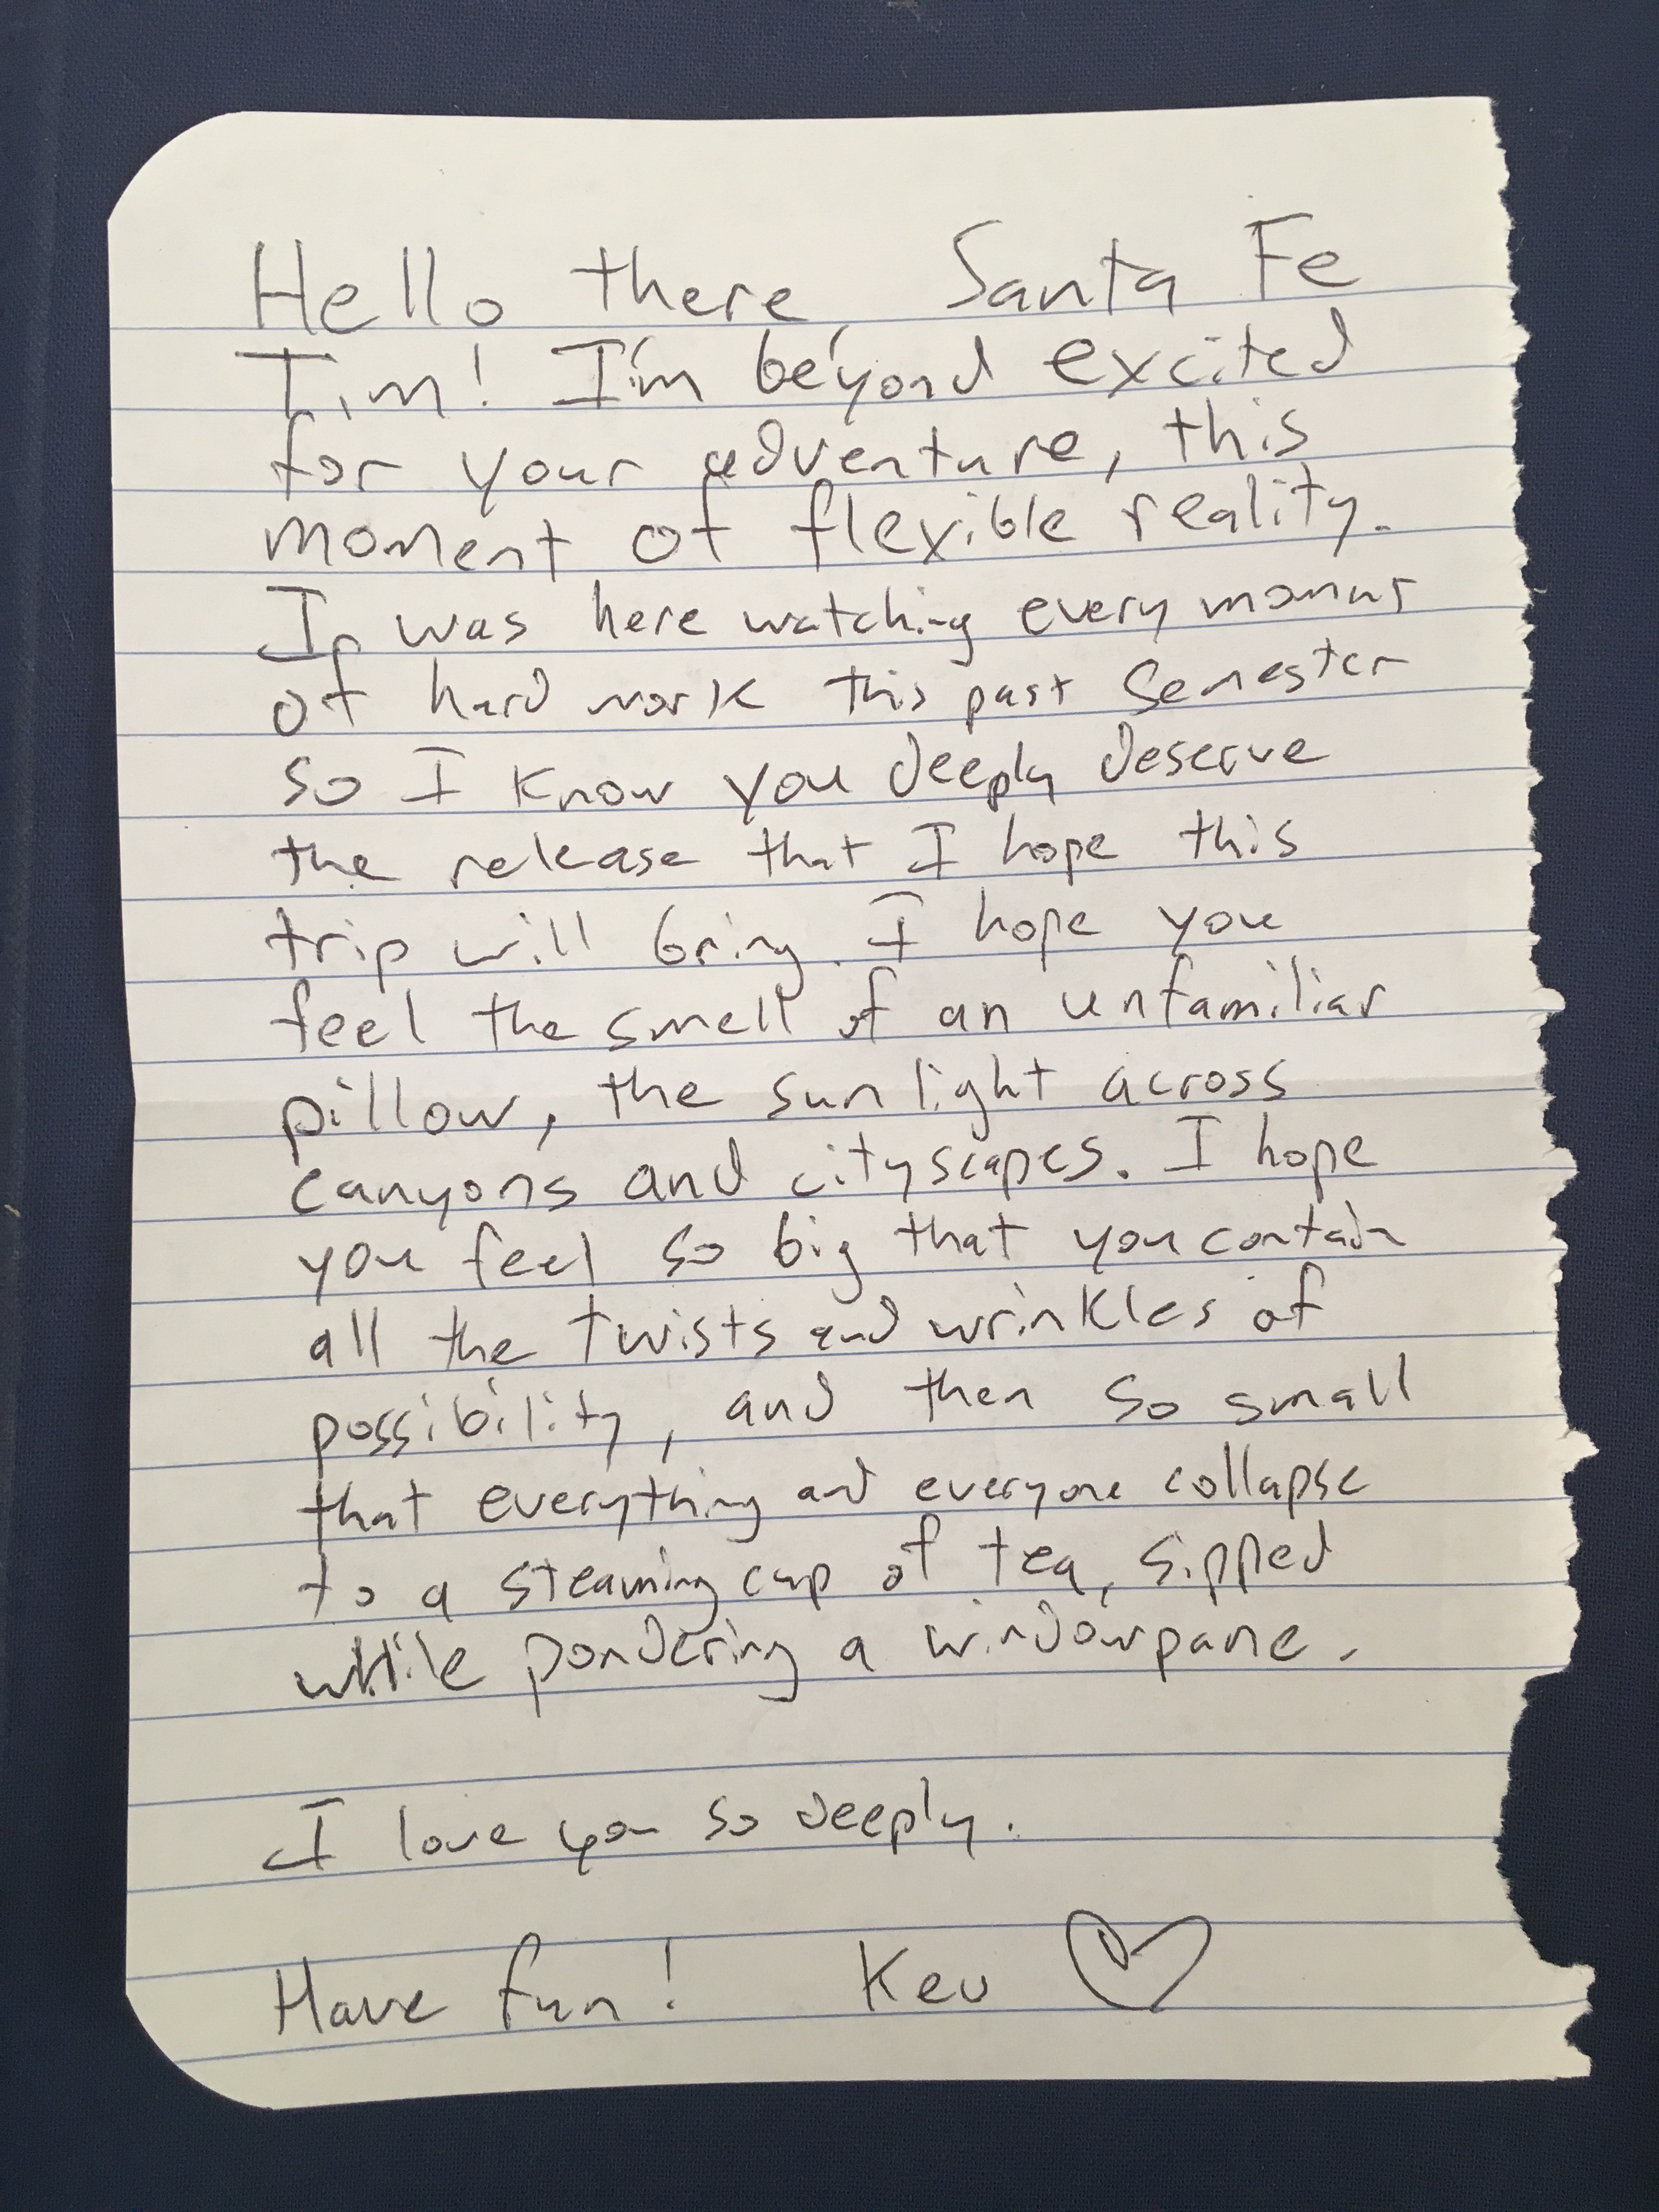 Hello there, Santa Fe
Tim! I'm beyond excited
for your adventure, this
moment of flexible reality.
I was here watching every moment
of hard work this past semester
so I know you deeply deserve
the release that I hope this
trip will bring. I hope you
feel the smell of an unfamiliar
pillow, the sunlight across
canyons and cityscapes. I hope
you feel so big that you contain
all the twists and wrinkles of
possibility, and then so small
that everything and everyone collapse
to a steaming cup of tea, sipped
while pondering a windowpane.
I love you so deeply.
Have fun! Kev